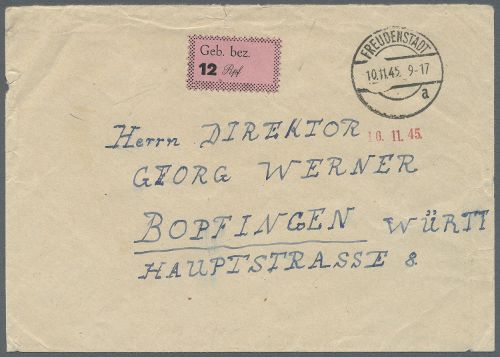 Geb. bez.
12 Rpf
FREUDENSTADT
10.11.45. 9-17
a
16. 11. 45.
Herrn DIREKTOR
GEORG WERNER
BOPFINGEN WÜRTT
HAUPTSTRASSE 8.